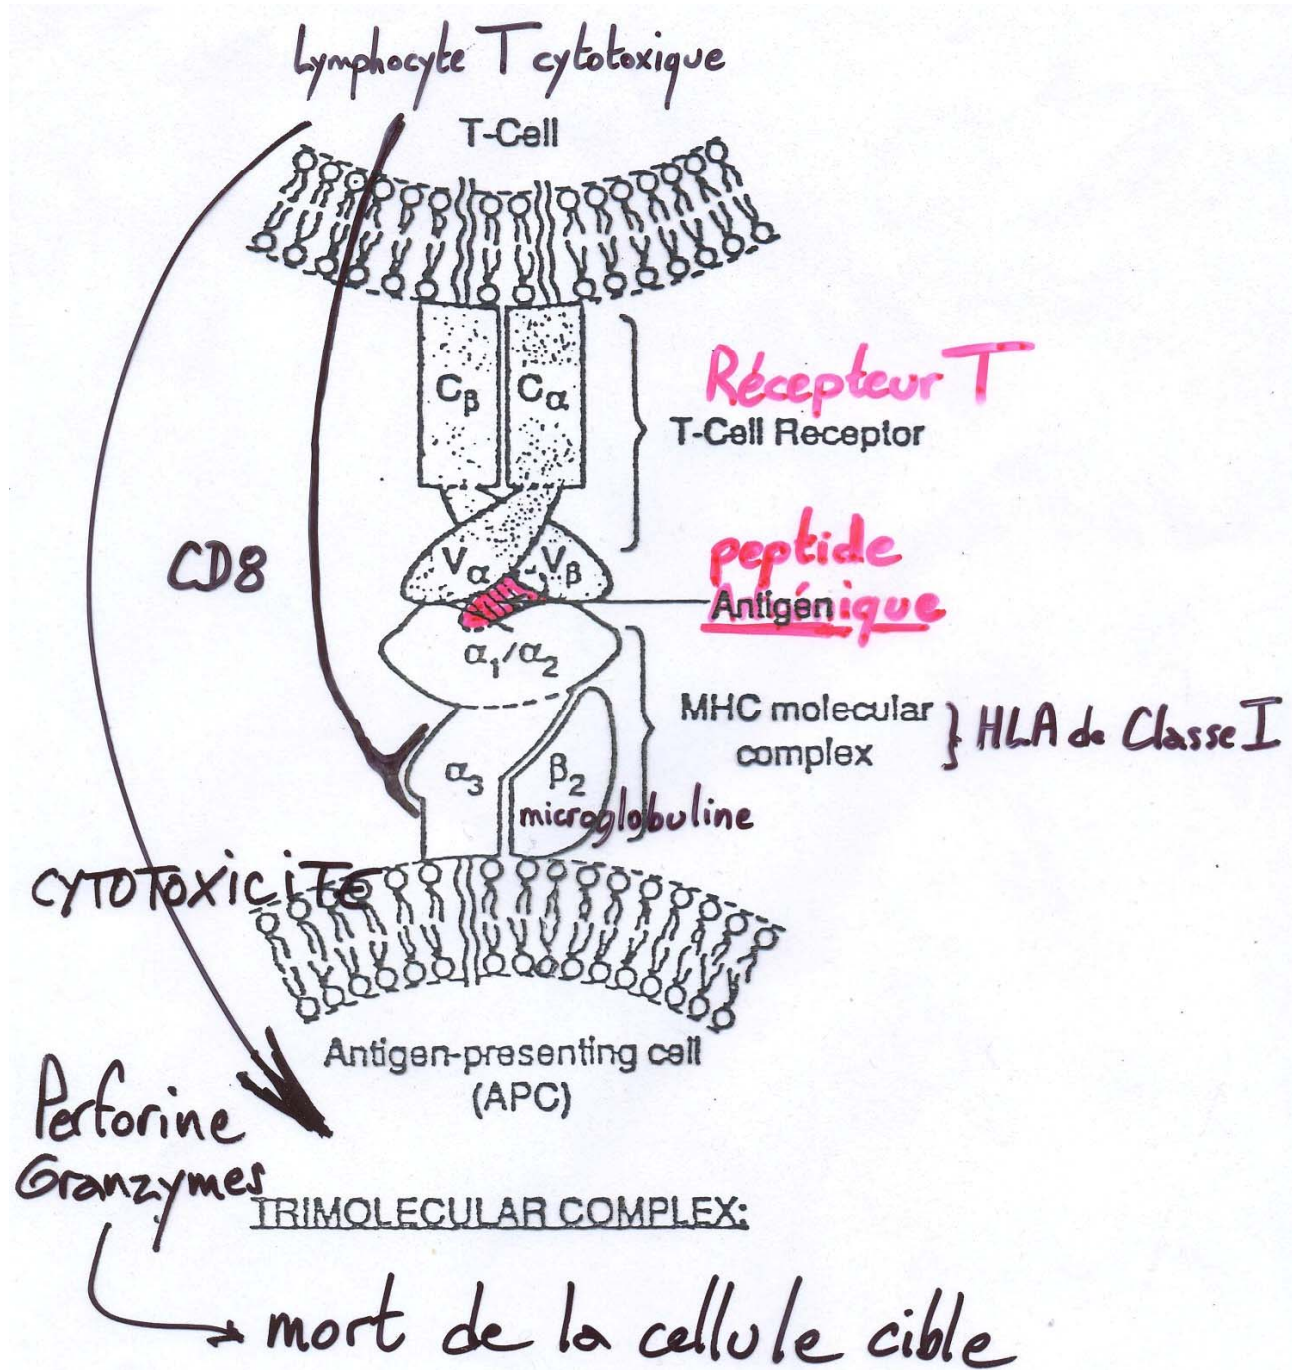 Lymphocyte T cytotoxique
T-Cell
Cβ
Cα
Récepteur T
T-Cell Receptor
CD8
Vα
Vβ
peptide
Antigénique
α1/α2
MHC molecular
complex
} HLA de Classe I
α3
β2
microglobuline
CYTOTOXICITE
Antigen-presenting cell
(APC)
Perforine
Granzymes
TRIMOLECULAR COMPLEX:
mort de la cellule cible